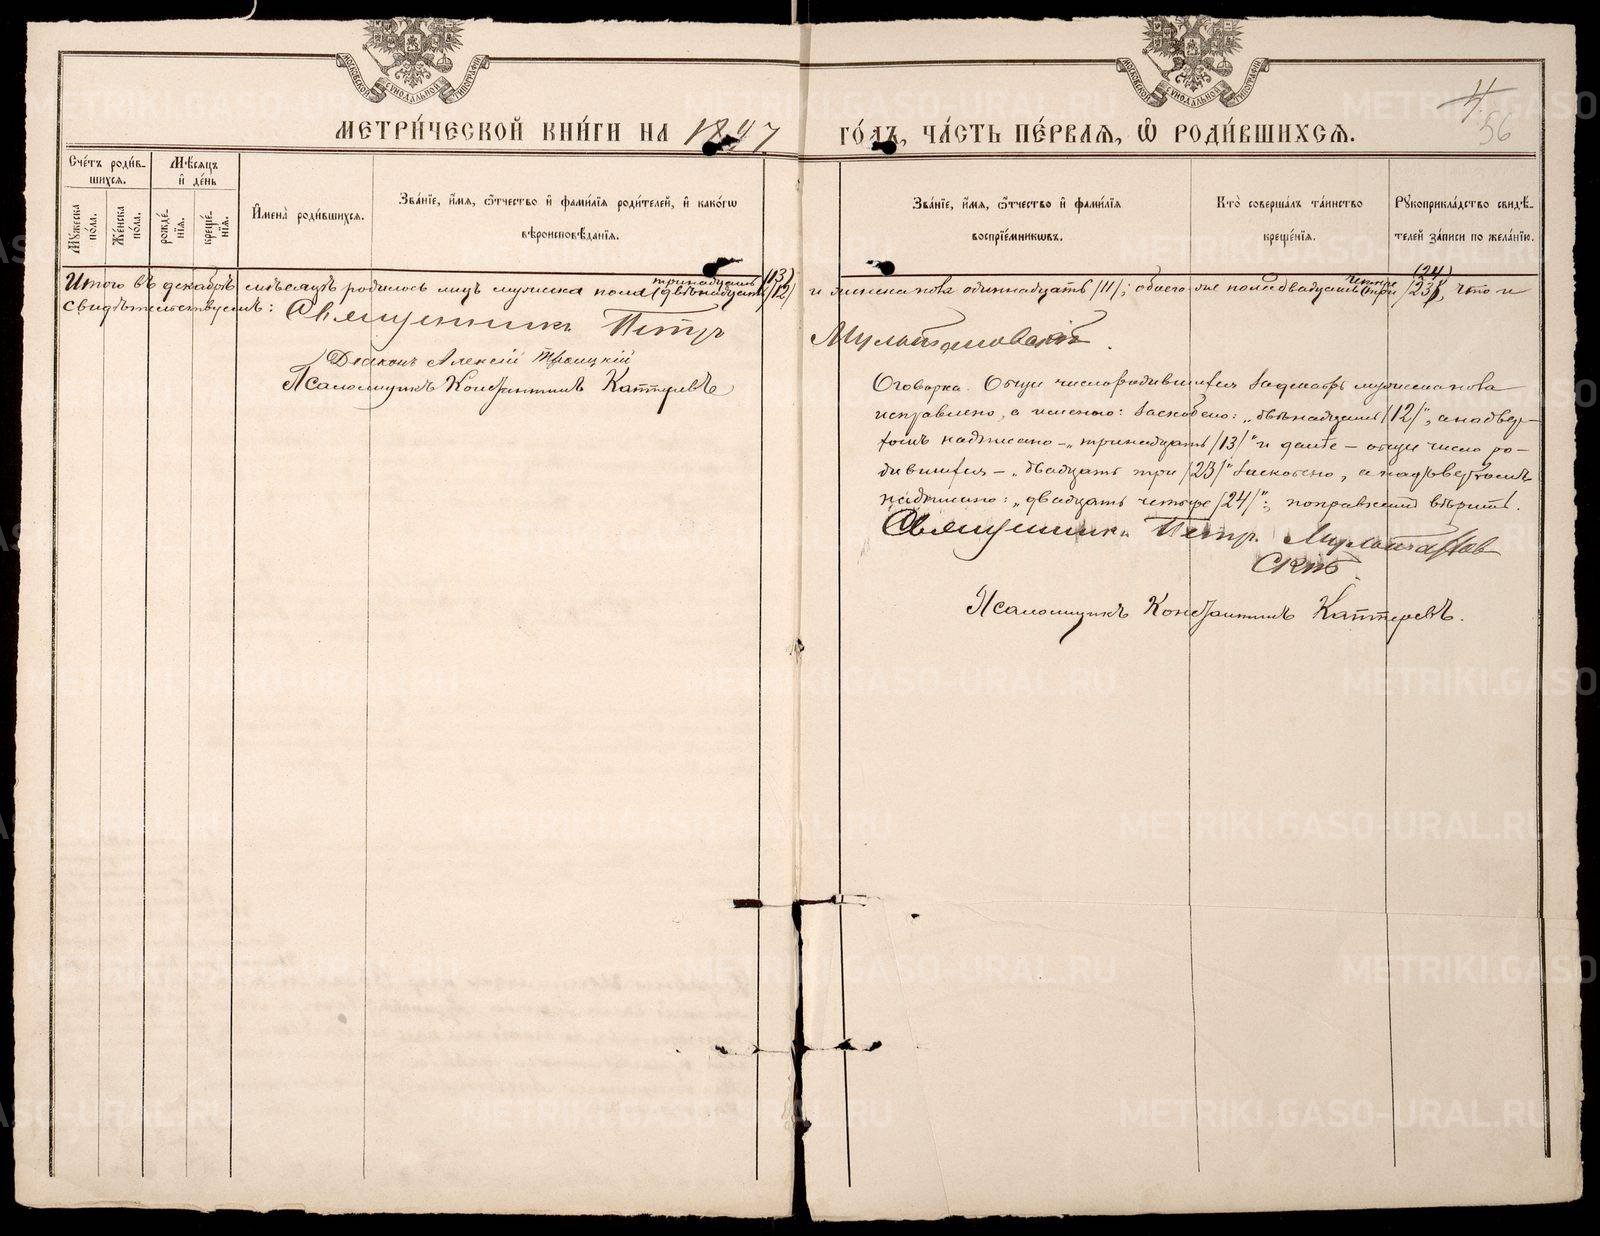 МОСКОВСКОЙ СѴНОДАЛЬНОЙ ТИПОГРАФІИ
МОСКОВСКОЙ СѴНОДАЛЬНОЙ ТИПОГРАФІИ
4
56
МЕТРИ́ЧЕСКОЙ КНИ́ГИ НА 1897 ГО́ДЪ, ЧА́СТЬ ПЕ́РВАЯ, Ѽ РОДИ́ВШИХСЯ.
Сче́тъ роди́в-
шихся.
Му́жеска по́ла.
Же́нска по́ла.
Мѣ́сяцъ
и҆ де́нь
рожде́-
нїя.
креще́-
нїя.
И҆мена̀ роди́вшихся.
Зва́нїе, и҆́мя, ѻ҆́тчество и҆ фами́лїя роди́телей, и҆ како́гѡ
вѣроисповѣ́данїя.
Зва́нїе, и҆́мя, ѻ҆́тчество и҆ фами́лїя
воспрїе́мникѡвъ.
Кто̀ соверша́лъ та́инство
креще́нїя.
Рꙋкоприкла́дство свидѣ́-
телей за́писи по жела́нїю.
тринадцать (13)
четыре (24)
Итого въ декабрѣ мѣсяцѣ родилось лицъ мужеска пола (двѣнадцать) /12/ и женска пола одиннадцать /11/; обоего же пола двадцать (три) /23/, что и
свидѣтельствуемъ: Священникъ Петръ Мультановскій.
Діаконъ Алексій Троицкій
Псаломщикъ Константинъ Каттеревъ
Оговорка. Общее число родившихся за декабрь мужеска пола
исправлено, а именно: заскоблено: „двѣнадцать /12/“, а надвер-
хомъ надписано – „тринадцать /13/“ и далѣе – общее число ро-
дившихся – „двадцать три /23/“ заскоблено, а надъ верхомъ
надписано: „двадцать четыре /24/“; поправкѣ вѣрить.
Священникъ Петръ Мультанов
скій
Псаломщикъ Константинъ Каттеревъ.
METRIKI.GASO-URAL.RU